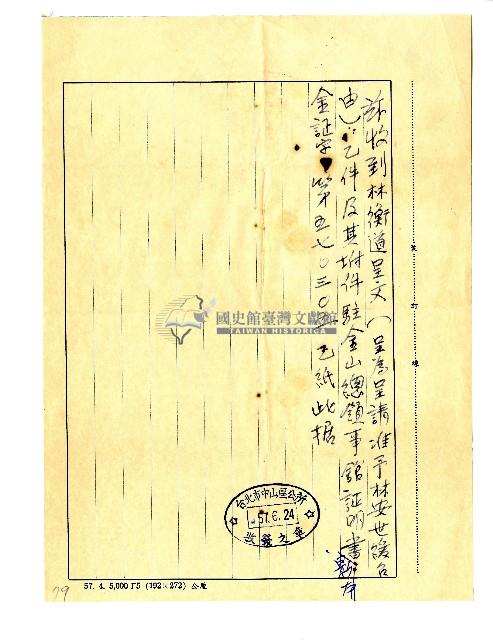 茲收到林衡道呈文（呈為呈請准予林安世返台
由）乙件及其坿件駐金山總領事館証明書
金証字第五七〇三〇五乙紙此據
裝 訂 線
國史館臺灣文獻館
TAIWAN HISTORICA
台北市中山區公所
57.6.24
收發之章
57. 4. 5,000 (192×272) 公厘
79